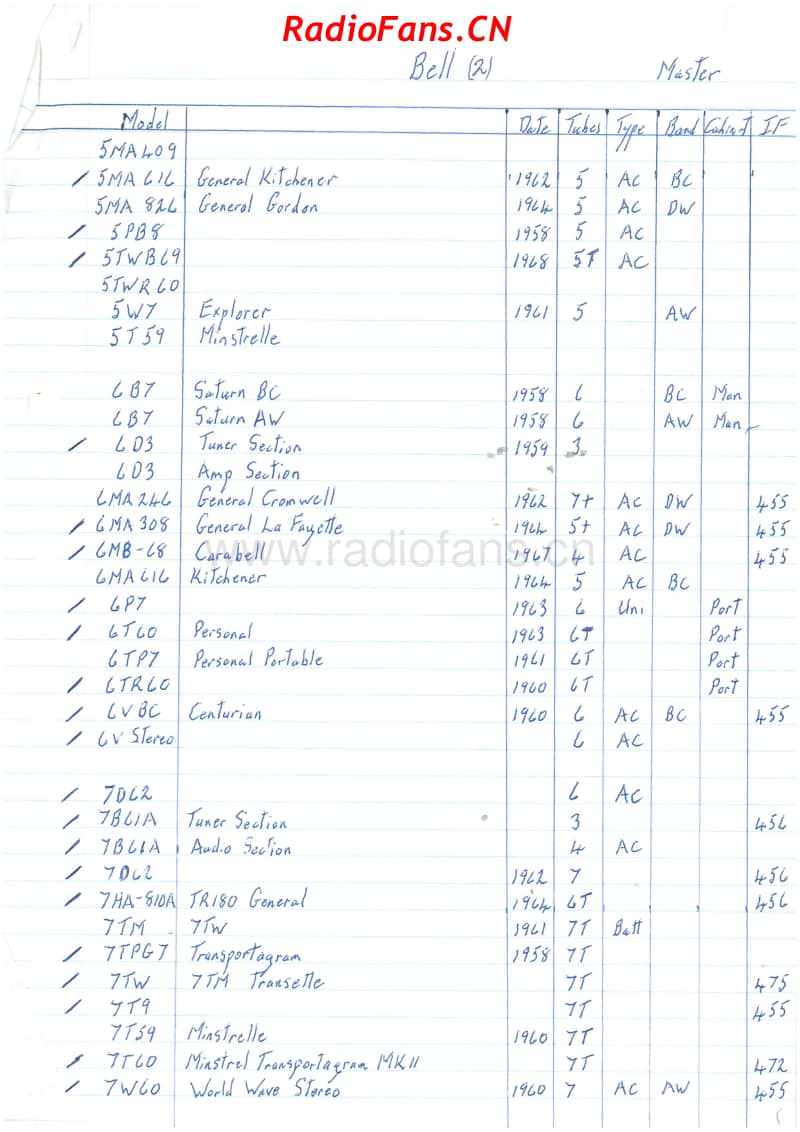 RadioFans.CN
Bell (2) Master
Model Date Tubes Type Band Cabinet IF
5MA409
/ 5MA616 General Kitchener 1962 5 AC BC
5MA 826 General Gordon 1964 5 AC DW
/ 5PB8 1958 5 AC
/ 5TWB69 1968 5T AC
5TWR60
5W7 Explorer 1961 5 AW
5T59 Minstrelle
6B7 Saturn BC 1958 6 BC Man
6B7 Saturn AW 1958 6 AW Man
/ 6D3 Tuner Section 1959 3
6D3 Amp Section
6MA246 General Cromwell 1962 7+ AC DW 455
/ 6MA308 General La Fayette 1964 5+ AC DW 455
/ 6MB-68 Carabell 1967 4 AC 455
www.radiofans.cn
6MA616 Kitchener 1964 5 AC BC
/ 6P7 1963 6 Uni Port
/ 6T60 Personal 1963 6T Port
6TP7 Personal Portable 1961 6T Port
/ 6TR60 1960 6T Port
/ 6VBC Centurian 1960 6 AC BC 455
/ 6V Stereo 6 AC
/ 7D62 6 AC
/ 7B61A Tuner Section 3 456
/ 7B61A Audio Section 4 AC
/ 7D62 1962 7 456
/ 7HA-810A TR180 General 1964 6T 456
7TM 7TW 1961 7T Batt
/ 7TPG7 Transportagram 1958 7T
/ 7TW 7TM Transelle 7T 475
/ 7T9 7T 455
7T59 Minstrelle 1960 7T
/ 7T60 Minstrel Transportagram MKII 7T 472
/ 7W60 World Wave Stereo 1960 7 AC AW 455